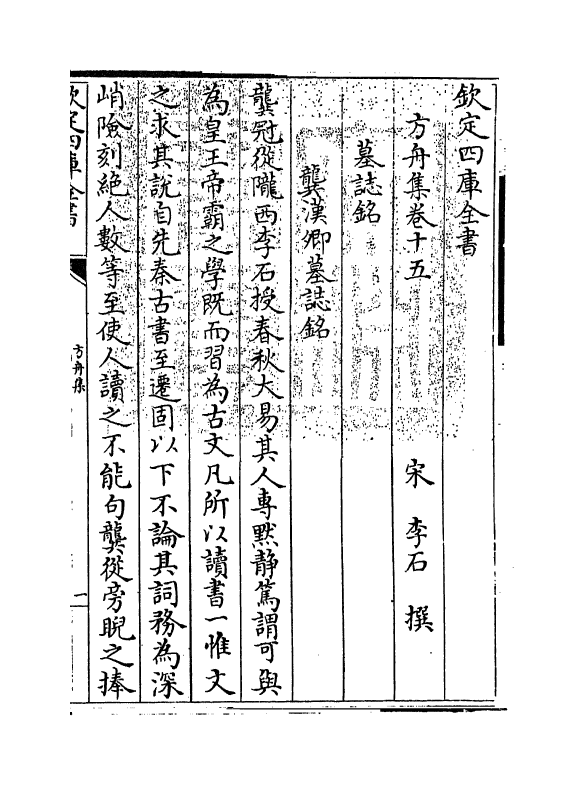 欽定四庫全書
方舟集卷十五　宋　李石　撰
墓誌銘
龔漢卿墓誌銘
龔冠從隴西李石授春秋大易其人專默靜篤謂可與
為皇王帝霸之學既而習為古文凡所以讀書一惟文
之求其說自先秦古書至遷固以下不論其詞務為深
峭險刻絕人數等至使人讀之不能句龔從旁睨之捧
欽定四庫全書
方舟集
一